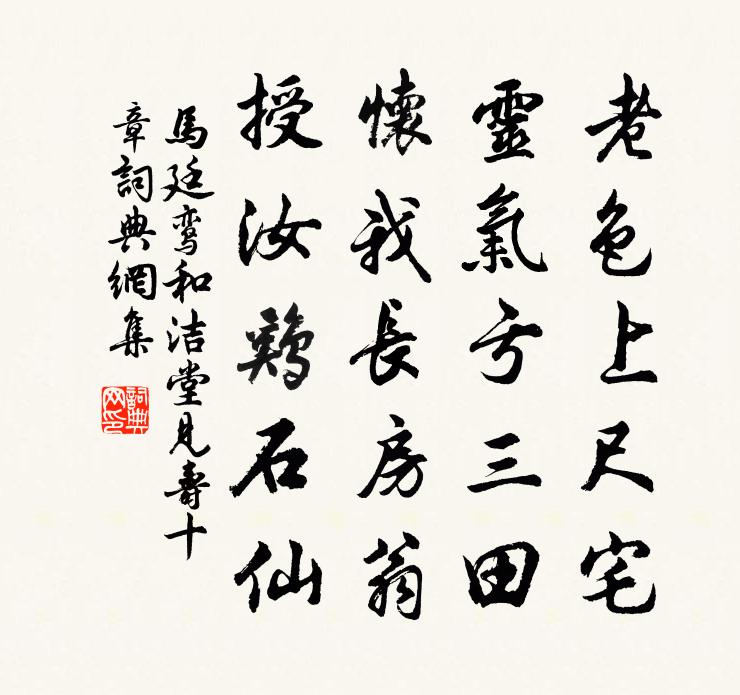 老色上尺宅
靈氣亏三田
懷我長房翁
授汝鷄石仙
馬廷鸾和洁堂見壽十
章詞典網集
詞典网印